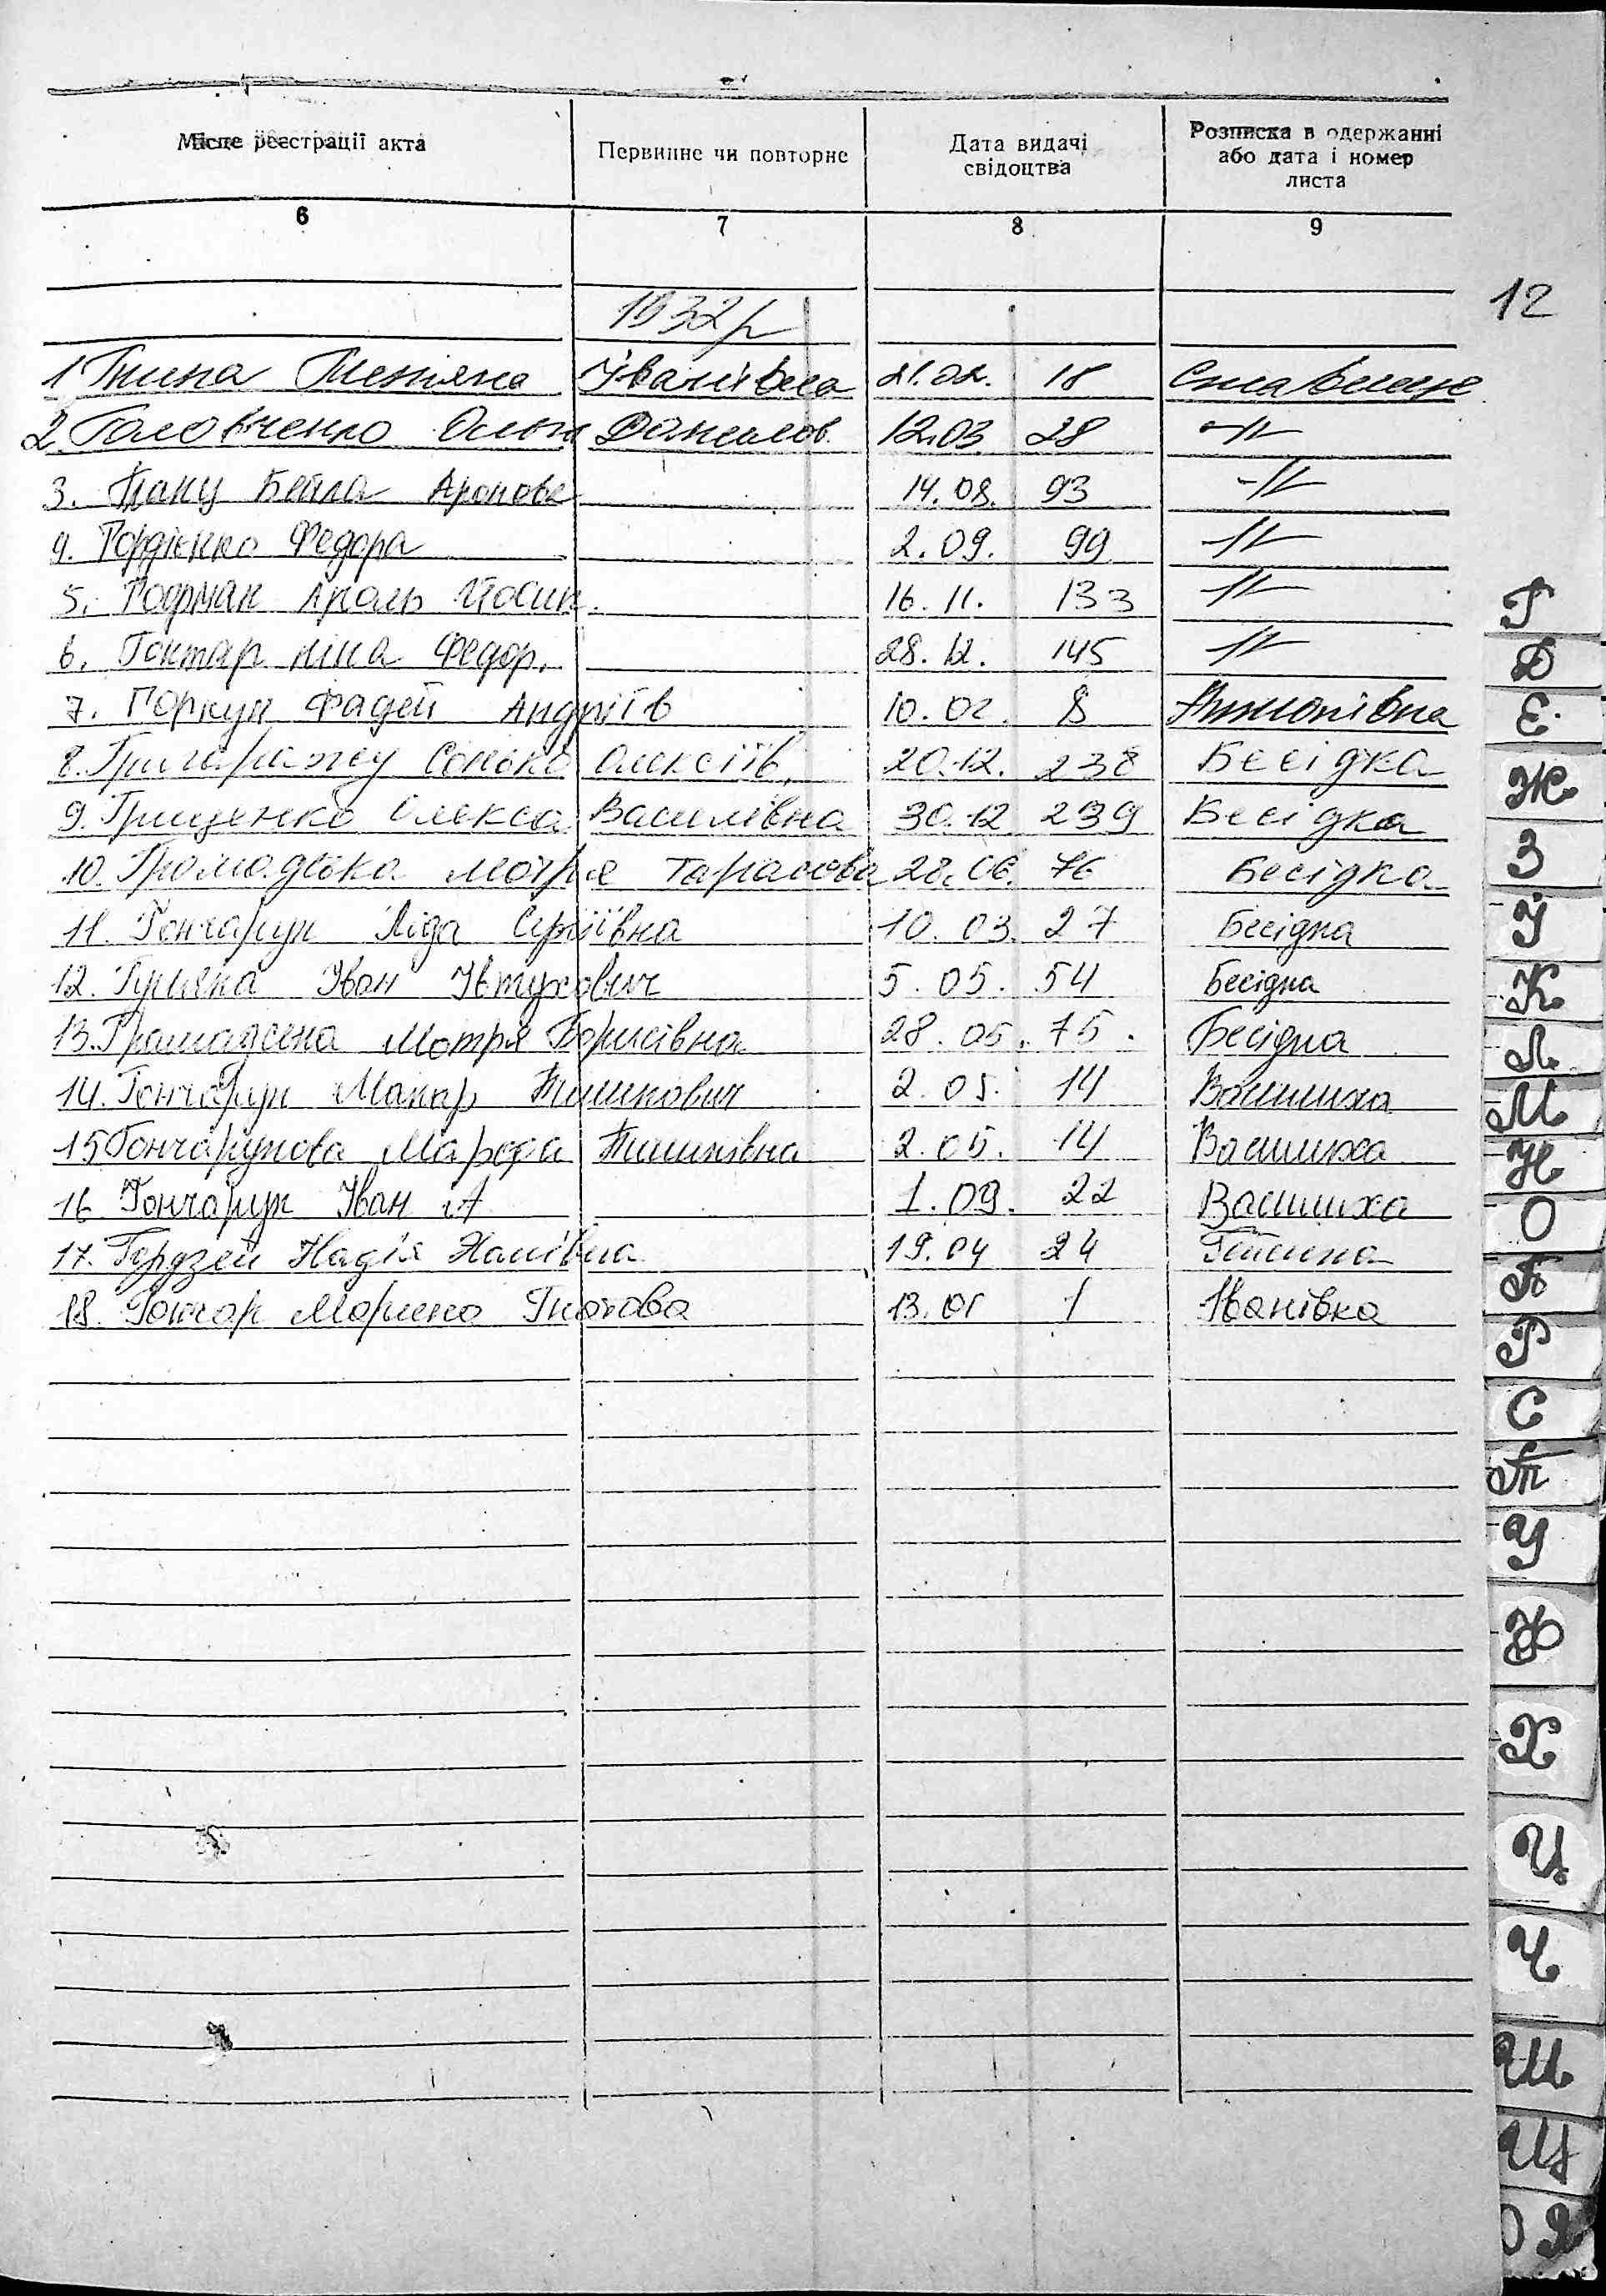 Місце реєстрації акта | Первинне чи повторне | Дата видачі свідоцтва | Розписка в одержанні або дата і номер листа
6 | 7 | 8 | 9
12
1932 р
1 Тетяна Іванівна 21.02. 18 Ставище
2. Головченко Ольга Данилов. 12.03 28 -//-
3. Бейла Аронова 14.08. 93 -//-
4. Гордієнко Федора 2.09. 99 -//-
5. Гофман Йосип. 16.11. 133 -//-
6. Гонтар Ніна Федор. 28.12. 145 -//-
7. Горкун Фадей Андріїв 10.02. 8 Антонівка
8. Олексіїв. 20.12. 238 Бесідка
9. Грищенко Олекса Василівна 30.12 239 Бесідка
10. Громадська Мотря Тарасова 28.06. 76 Бесідка
11. Гончарук Ліда Сергіївна 10.03. 27 Бесідка
12. Іван Івтухович 5.05. 54 Бесідка
13. Мотря Борисівна 28.05. 75. Бесідка
14. Гончарук Макар Тимкович 2.05. 14 Василиха
15 Гончарукова Тимківна 2.05. 14 Василиха
16 Гончарук Іван А 1.09. 22 Василиха
17. Гердзей Надія 19.04 24
18. Гончар Марина Гнатова 13.01 1 Іванівка
Г
Д
Є
Ж
З
І
К
Л
М
Н
О
П
Р
С
Т
У
Ф
Х
Ц
Ч
Ш
Щ
Ю Я